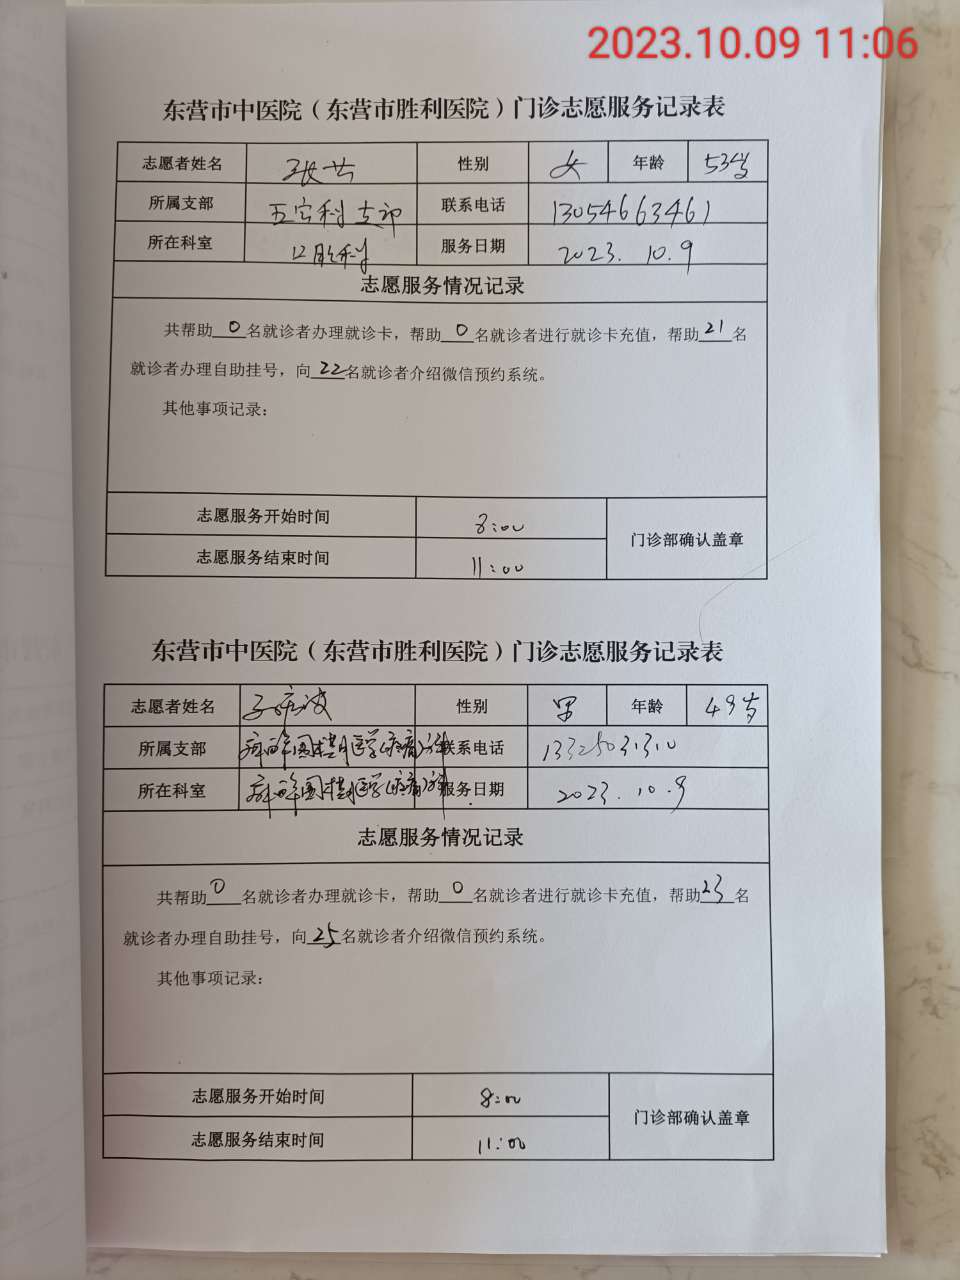 2023.10.09 11:06
东营市中医院（东营市胜利医院）门诊志愿服务记录表
志愿者姓名 张芸 性别 女 年龄 53岁
所属支部 五官科支部 联系电话 13054663461
所在科室 口腔科 服务日期 2023. 10. 9
志愿服务情况记录
共帮助0名就诊者办理就诊卡，帮助0名就诊者进行就诊卡充值，帮助21名
就诊者办理自助挂号，向22名就诊者介绍微信预约系统。
其他事项记录：
志愿服务开始时间 8:00
门诊部确认盖章
志愿服务结束时间 11:00
东营市中医院（东营市胜利医院）门诊志愿服务记录表
志愿者姓名 性别 男 年龄 49岁
所属支部 联系电话
所在科室 服务日期 2023. 10. 9
志愿服务情况记录
共帮助0名就诊者办理就诊卡，帮助0名就诊者进行就诊卡充值，帮助23名
就诊者办理自助挂号，向25名就诊者介绍微信预约系统。
其他事项记录：
志愿服务开始时间 8:00
门诊部确认盖章
志愿服务结束时间 11:00